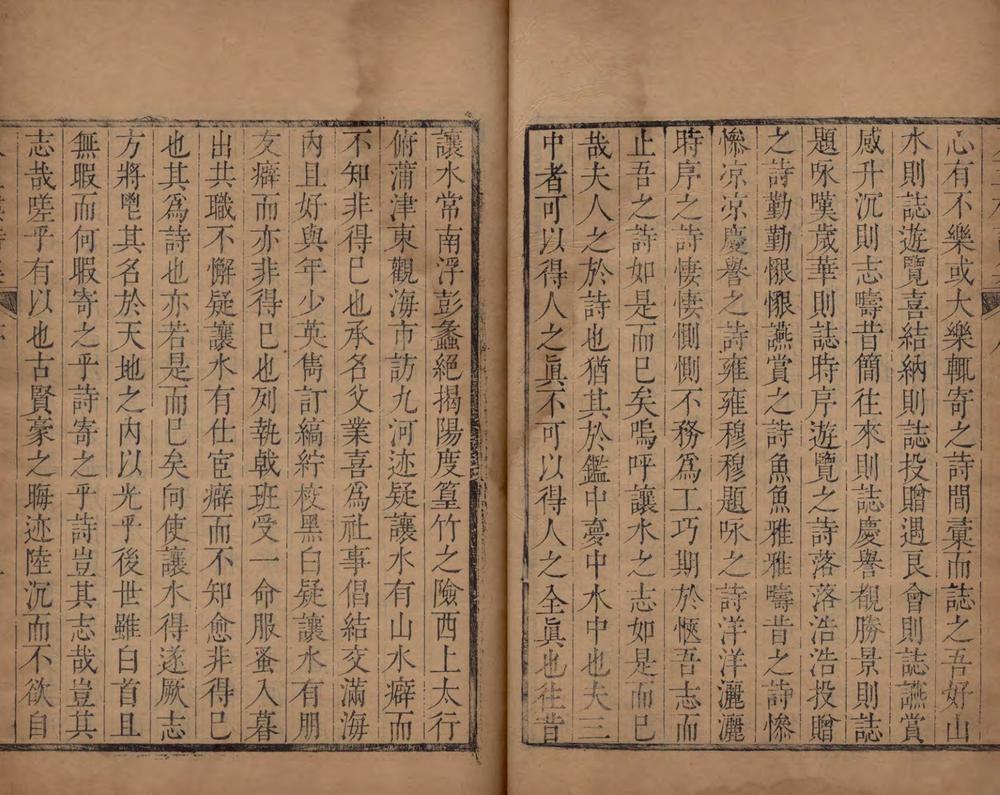 心有不樂或大樂輒寄之詩間彚而誌之吾好山
水則誌遊覽喜結納則誌投贈遇良會則誌讌賞
感升沉則志疇昔簡往來則誌慶譽覩勝景則誌
題咏嘆歲華則誌時序遊覽之詩落落浩浩投贈
之詩勤勤懇懇讌賞之詩魚魚雅雅疇昔之詩慘
慘凉凉慶譽之詩雍雍穆穆題咏之詩洋洋灑灑
時序之詩悽悽惻惻不務爲工巧期於愜吾志而
止吾之詩如是而已矣嗚呼讓水之志如是而已
哉夫人之於詩也猶其於鑑中夢中水中也夫三
中者可以得人之眞不可以得人之全眞也往昔
讓水常南浮彭蠡絕揭陽度篁竹之險西上太行
俯蒲津東觀海市訪九河迹疑讓水有山水癖而
不知非得已也承名父業喜爲社事倡結交滿海
內且好與年少英雋訂縞紵校黑白疑讓水有朋
友癖而亦非得已也列執戟班受一命服蚤入暮
出共職不懈疑讓水有仕宦癖而不知愈非得已
也其爲詩也亦若是而已矣向使讓水得遂厥志
方將鬯其名於天地之內以光乎後世雖白首且
無暇而何暇寄之乎詩寄之乎詩豈其志哉豈其
志哉嗟乎有以也古賢豪之晦迹陸沉而不欲自